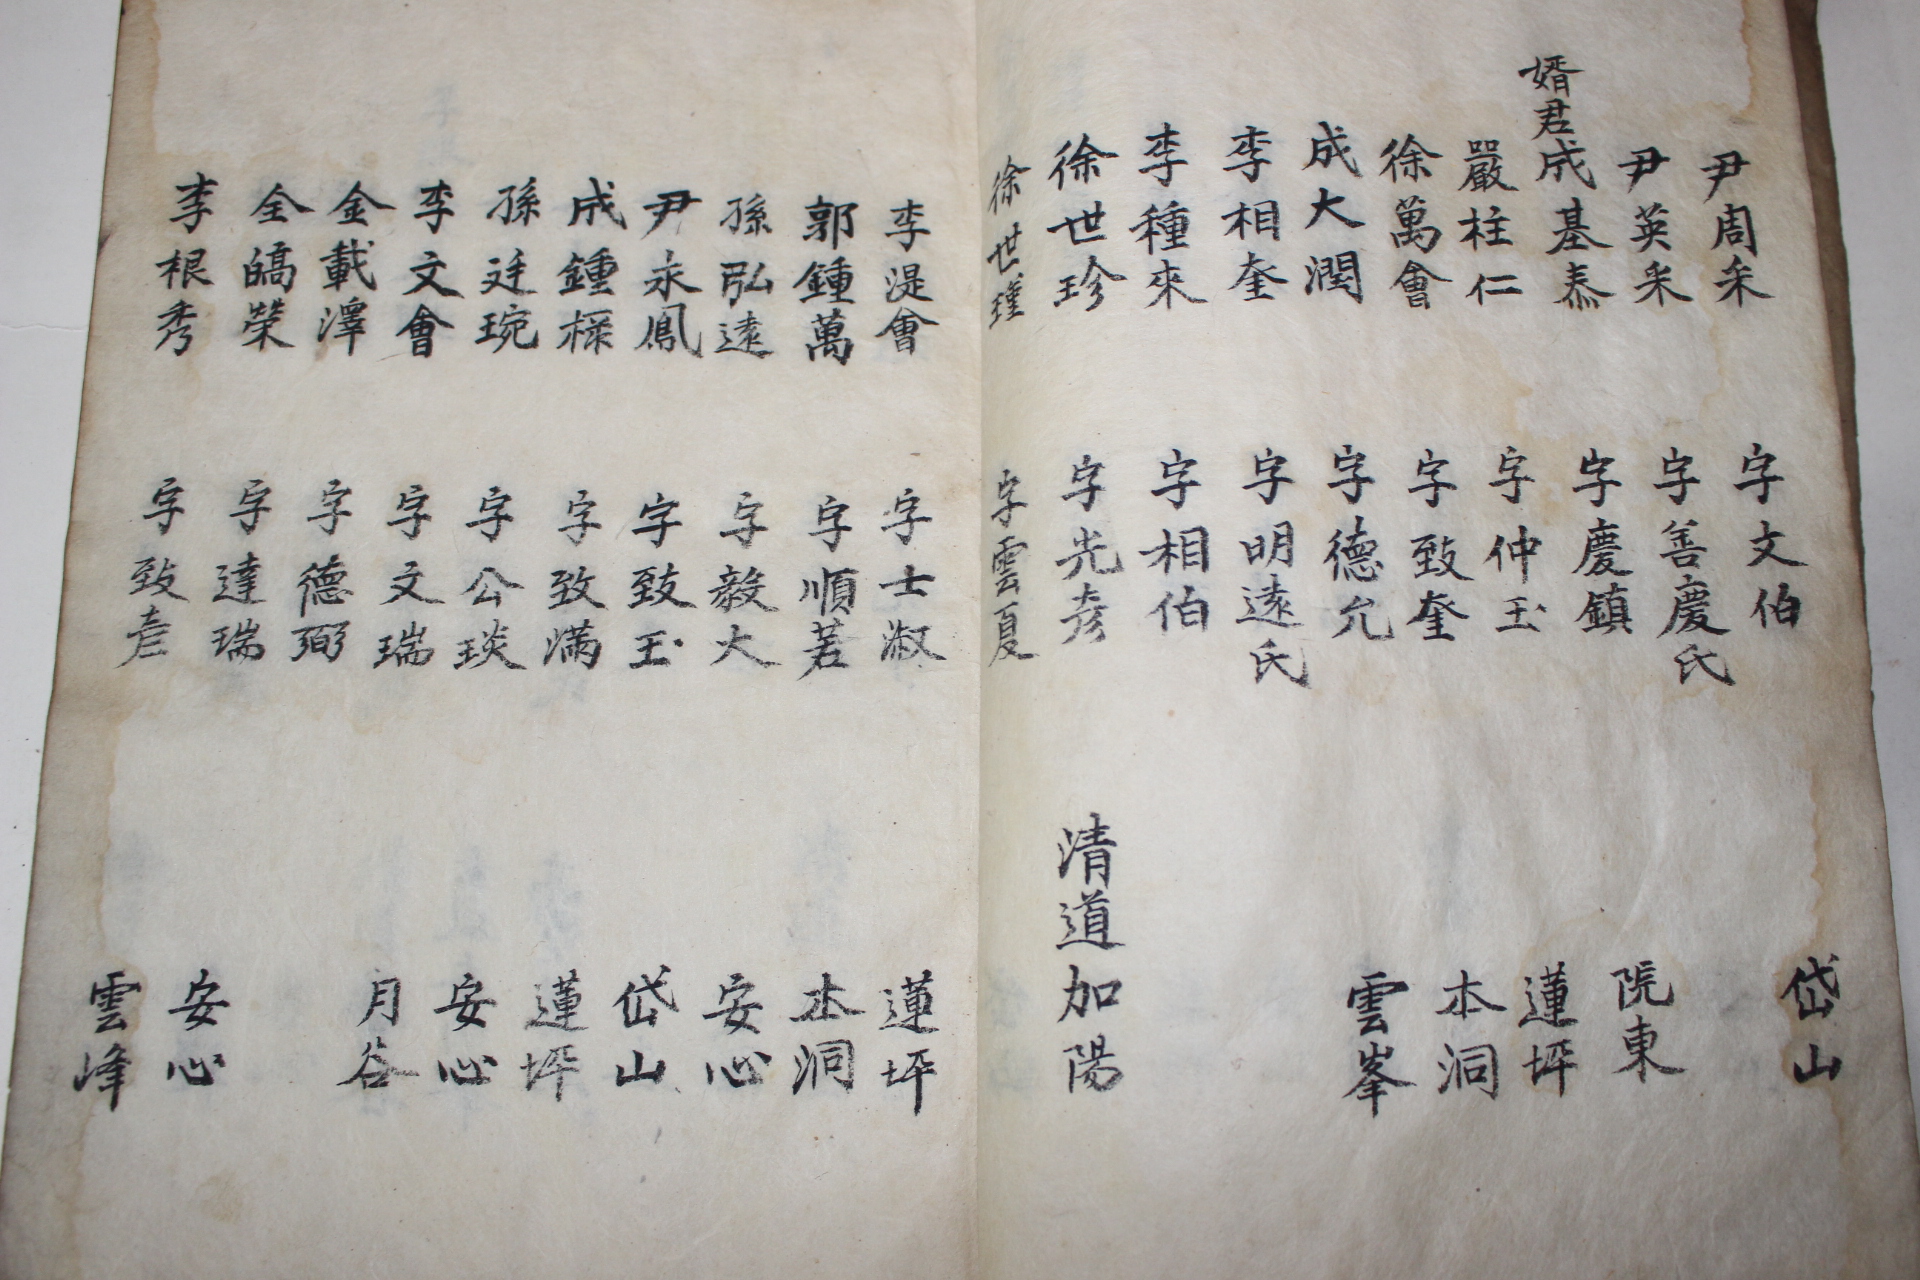 尹周采 字文伯 岱山
尹英采 字善慶氏
婿君成基泰 字慶鎮 院東
嚴柱仁 字仲玉 蓮坪
徐萬會 字致奎 本洞
成大潤 字德允 雲峯
李相奎 字明遠氏
李種來 字相伯
徐世珍 字光彦 清道加陽
徐世瑾 字雲夏
李湜會 字士淑 蓮坪
郭鍾萬 字順若 本洞
孫弘遠 字毅大 安心
尹永鳳 字致玉 岱山
成鍾 字致滿 蓮坪
孫廷琬 字公琰 安心
李文會 字文瑞 月谷
金載澤 字德弼
全皜榮 字達瑞 安心
李根秀 字致彦 雲峰